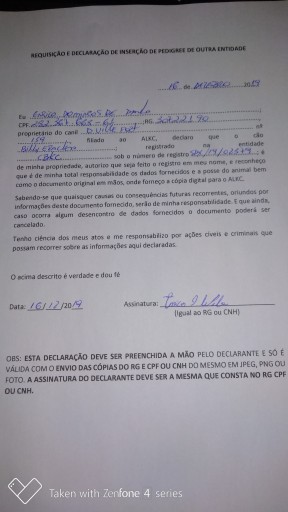 REQUISIÇÃO E DECLARAÇÃO DE INSERÇÃO DE PEDIGREE DE OUTRA ENTIDADE
16 de DEZEMBRO 2019
Eu
CPF RG
proprietário do canil nº
filiado ao ALKC, declaro que o cão
registrado na entidade
CBKC sob o número de registro e
de minha propriedade, autorizo que seja feito o registro em meu nome, e reconheço
que é de minha total responsabilidade os dados fornecidos e a posse do animal bem
como o documento original em mãos, onde forneço a cópia digital para o ALKC.
Sabendo-se que quaisquer causas ou consequências futuras recorrentes, oriundos por
informações deste documento fornecido, serão de minha responsabilidade. E que ainda,
caso ocorra algum desencontro de dados fornecidos o documento poderá ser
cancelado.
Tenho ciência dos meus atos e me responsabilizo por ações cíveis e criminais que
possam recorrer sobre as informações aqui declaradas.
O acima descrito é verdade e dou fé
Data: 16/12/2019 Assinatura:
(Igual ao RG ou CNH)
OBS: ESTA DECLARAÇÃO DEVE SER PREENCHIDA A MÃO PELO DECLARANTE E SÓ É
VÁLIDA COM O ENVIO DAS CÓPIAS DO RG E CPF OU CNH DO MESMO EM JPEG, PNG OU
FOTO. A ASSINATURA DO DECLARANTE DEVE SER A MESMA QUE CONSTA NO RG CPF
OU CNH.
Taken with Zenfone 4 series